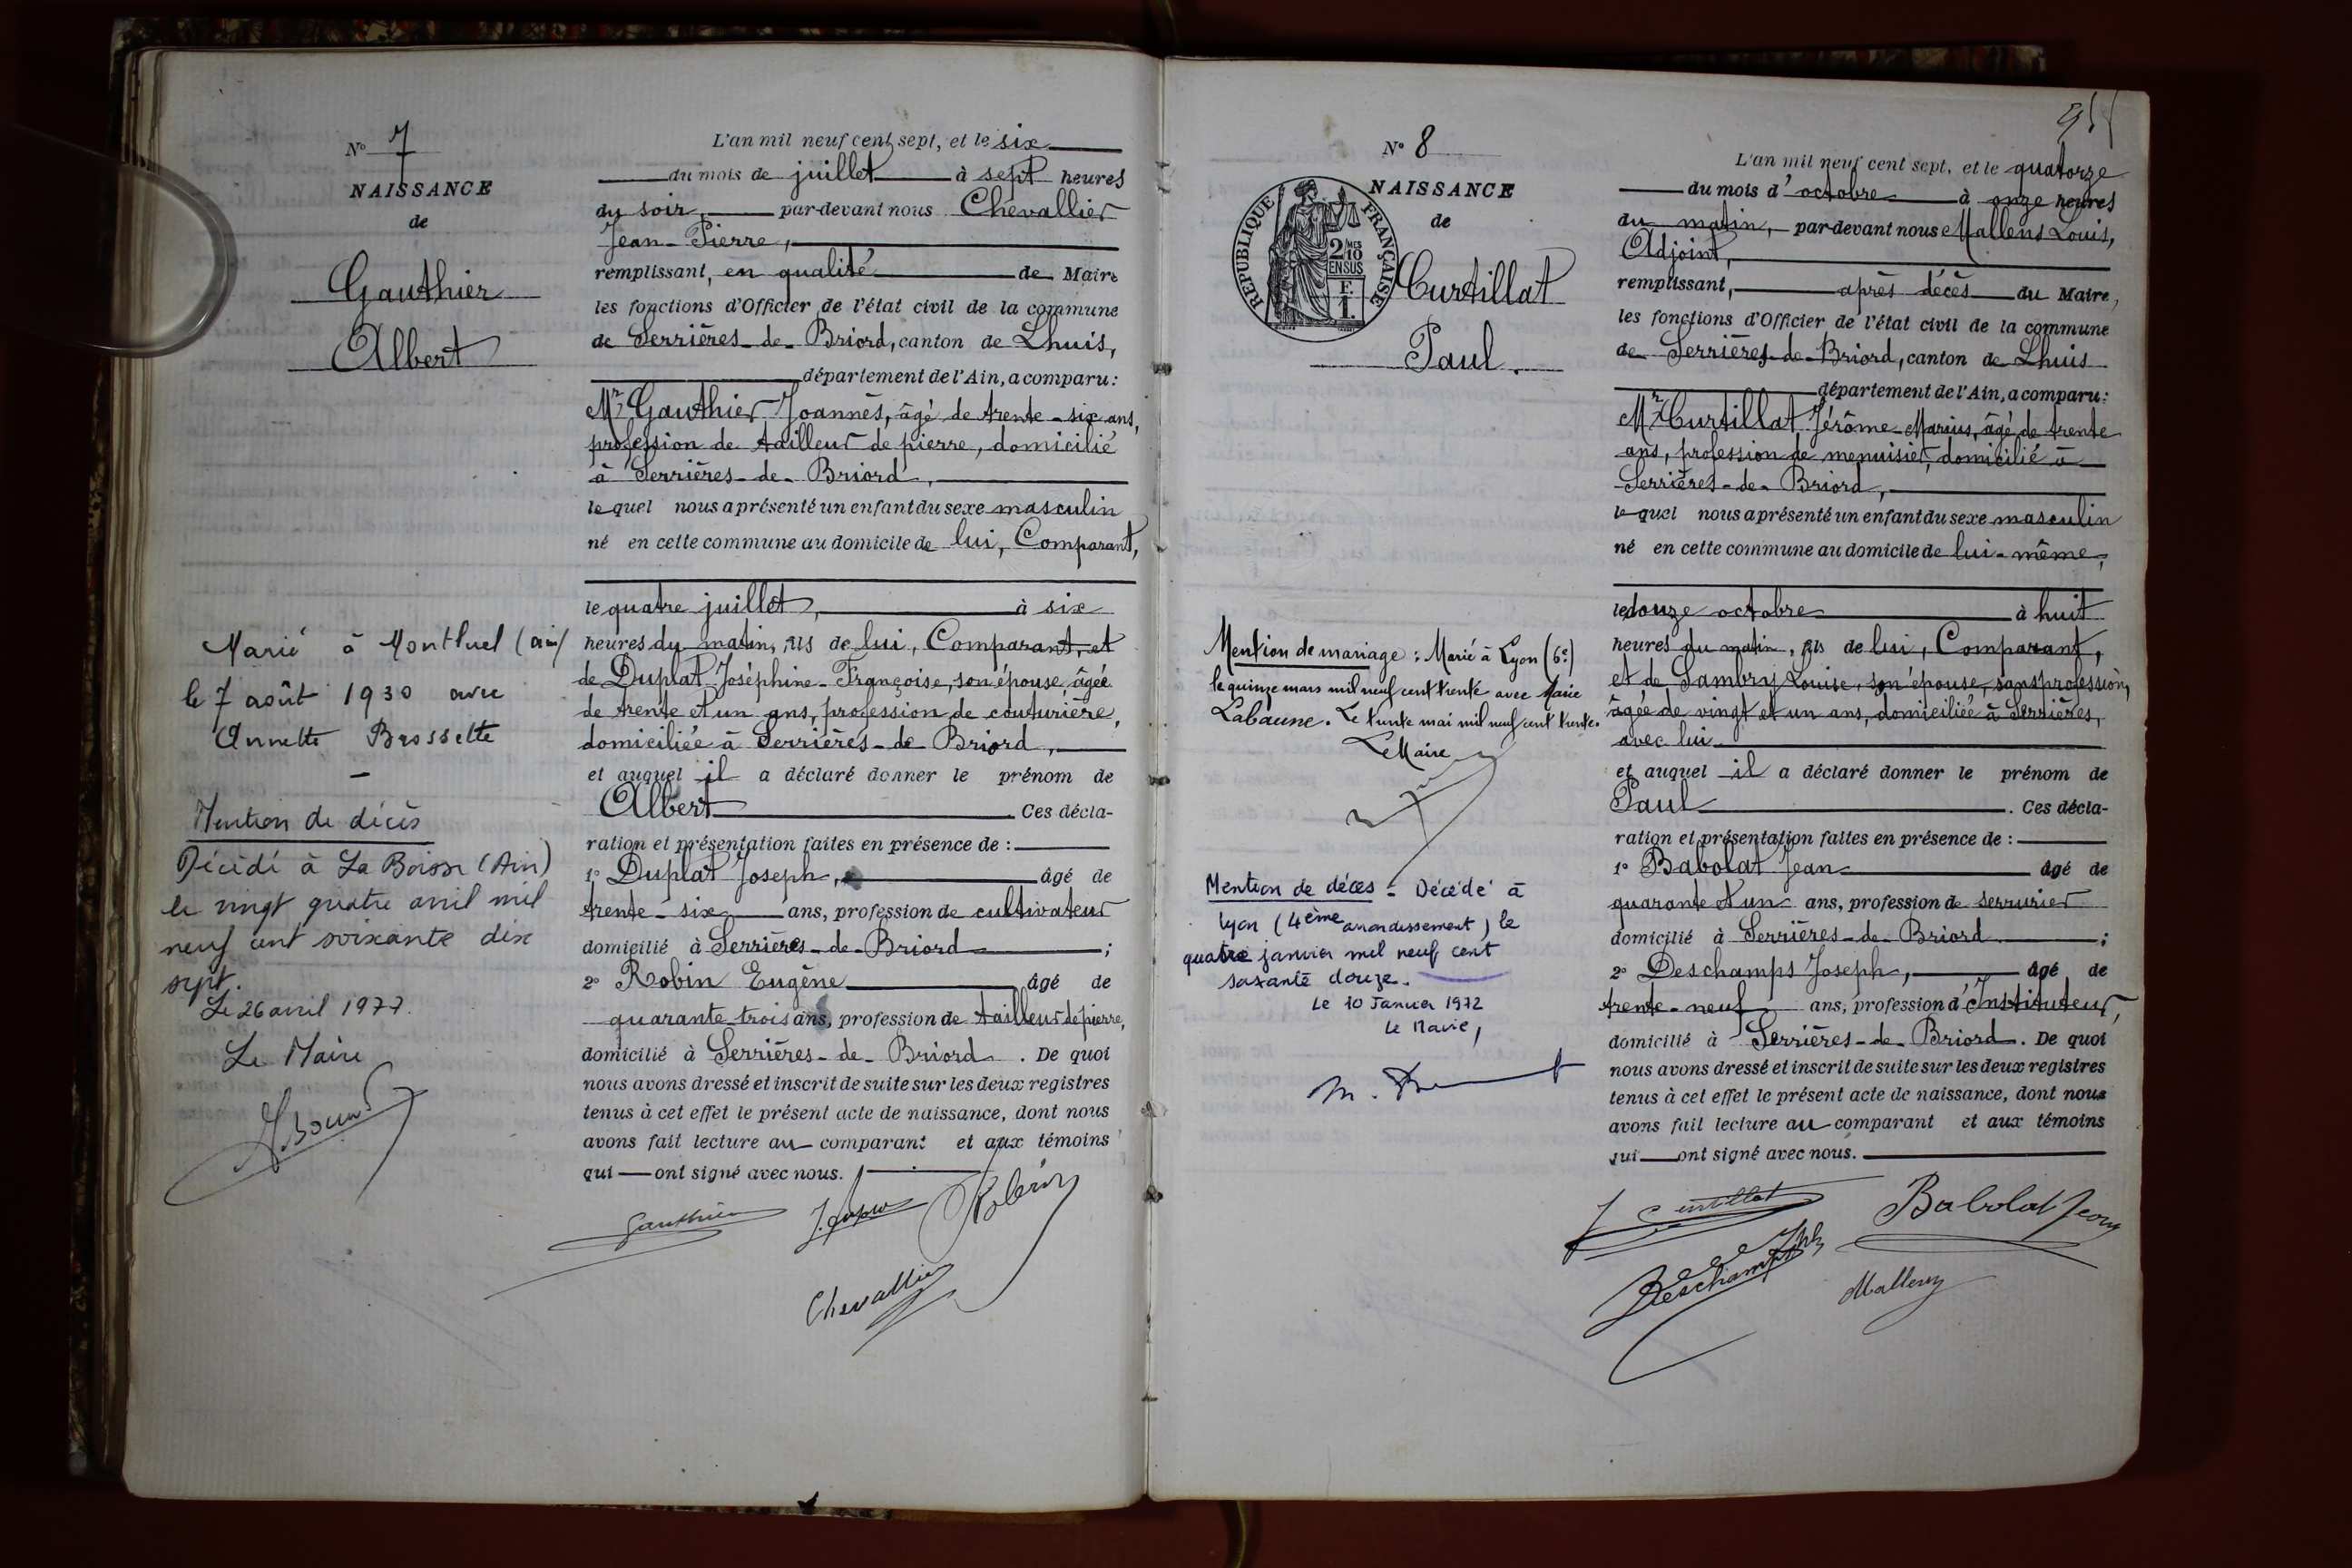 N° 7
NAISSANCE
de
Gauthier
Albert
Marié à Montluel (ain)
le 7 août 1930 avec
Annette Brossette
Mention de décès
Décédé à La Boisse (Ain)
le vingt quatre avril mil
neuf cent soixante dix
sept.
Le 26 avril 1977.
Le Maire
L'an mil neuf cent sept, et le six
du mois de juillet à sept heures
du soir, par-devant nous Chevallier
Jean-Pierre,
remplissant, en qualité de Maire
les fonctions d'Officier de l'état civil de la commune
de Serrières-de-Briord, canton de Lhuis,
département de l'Ain, a comparu :
Mr Gauthier Joannès, âgé de trente-six ans,
profession de tailleur de pierre, domicilié
à Serrières-de-Briord,
lequel nous a présenté un enfant du sexe masculin
né en cette commune au domicile de lui, Comparant,
le quatre juillet, à six
heures du matin, fils de lui, Comparant, et
de Duplat Joséphine-Françoise, son épouse, âgée
de trente et un ans, profession de couturière,
domiciliée à Serrières-de Briord,
et auquel il a déclaré donner le prénom de
Albert Ces décla-
ration et présentation faites en présence de :
1° Duplat Joseph, âgé de
trente-six ans, profession de cultivateur
domicilié à Serrières-de-Briord ;
2° Robin Eugène âgé de
quarante-trois ans, profession de tailleur de pierre,
domicilié à Serrières-de-Briord. De quoi
nous avons dressé et inscrit de suite sur les deux registres
tenus à cet effet le présent acte de naissance, dont nous
avons fait lecture au comparant et aux témoins
qui ont signé avec nous.
Gauthier Robin
Chevallier
N° 8
NAISSANCE
de
REPUBLIQUE FRANÇAISE
2/10
EN SUS
F.
1.
Curtillat
Paul.
Mention de mariage : Marié à Lyon (6e)
le quinze mars mil neuf cent trente avec Marie
Labaune. Le trente mai mil neuf cent trente.
Le Maire
Mention de décès - Décédé à
Lyon (4ème arrondissement) le
quatre janvier mil neuf cent
soixante douze.
Le 10 Janvier 1972
Le Maire,
L'an mil neuf cent sept, et le quatorze
du mois d'octobre à onze heures
du matin, par-devant nous Mallens Louis,
Adjoint,
remplissant, après décès du Maire,
les fonctions d'Officier de l'état civil de la commune
de Serrières-de-Briord, canton de Lhuis
département de l'Ain, a comparu :
Mr Curtillat Jérôme-Marius, âgé de trente
ans, profession de menuisier, domicilié à
Serrières-de-Briord,
lequel nous a présenté un enfant du sexe masculin
né en cette commune au domicile de lui-même,
le douze octobre à huit
heures du matin, fils de lui, Comparant,
et de Sambry Louise, son épouse, sans profession,
âgée de vingt et un ans, domiciliée à Serrières,
avec lui
et auquel il a déclaré donner le prénom de
Paul . Ces décla-
ration et présentation faites en présence de :
1° Babolat Jean âgé de
quarante et un ans, profession de serrurier
domicilié à Serrières-de-Briord ;
2° Deschamps Joseph, âgé de
trente-neuf ans, profession d'Instituteur,
domicilié à Serrières-de-Briord. De quoi
nous avons dressé et inscrit de suite sur les deux registres
tenus à cet effet le présent acte de naissance, dont nous
avons fait lecture au comparant et aux témoins
qui ont signé avec nous.
J Curtillat Babolat Jean
Deschamps Jph
Mallens